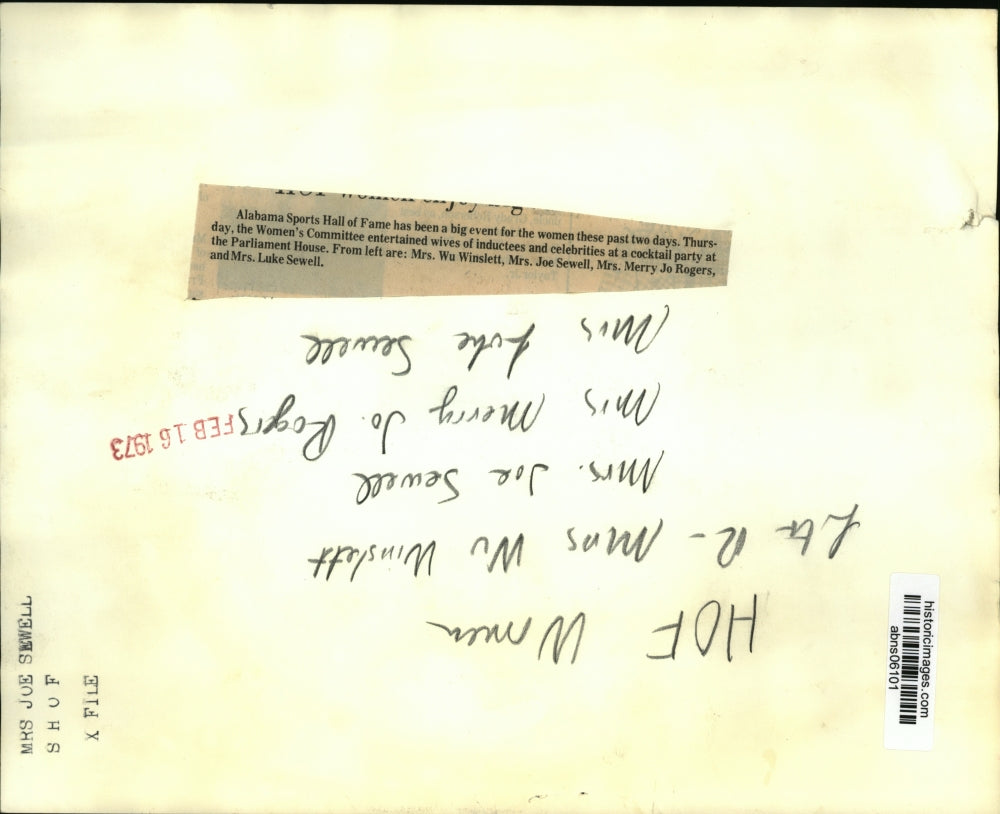 Alabama Sports Hall of Fame has been a big event for the women these past two days. Thurs-
day, the Women's Committee entertained wives of inductees and celebrities at a cocktail party at
the Parliament House. From left are: Mrs. Wu Winslett, Mrs. Joe Sewell, Mrs. Merry Jo Rogers,
and Mrs. Luke Sewell.
HOF Women
L to R - Mrs Wu Winslett
Mrs. Joe Sewell
Mrs Merry Jo. Rogers
Mrs Luke Sewell
FEB 16 1973
MRS JOE SEWELL
S H O F
X FILE
historicimages.com
abns06101